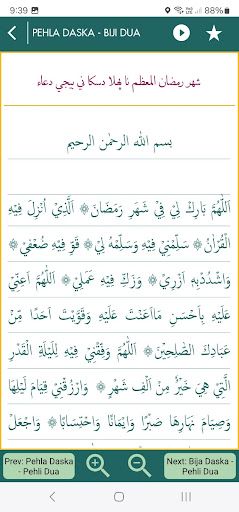 9:39
88%
PEHLA DASKA - BIJI DUA
شهر رمضان المعظم نا پهلا دسكا ني بيجي دعاء
بسم الله الرحمٰن الرحيم
اَللّٰهُمَّ بَارِكْ لِيْ فِيْ شَهْرِ رَمَضَانَ۞ اَلَّذِيْ اُنْزِلَ فِيْهِ
الْقُرْاٰنُ۞ سَلِّمْنِيْ فِيْهِ وَسَلِّمْهُ لِيْ۞ قَوِّ فِيْهِ ضُعْفِيْ۞
وَاشْدُدْبِهِ اَزْرِيْ۞ وَزَكِّ فِيْهِ عَمَلِيْ۞ اَللّٰهُمَّ اَعِنِّيْ
عَلَيْهِ بِاَحْسَنِ مَااَعَنْتَ عَلَيْهِ وَقَوَّيْتَ اَحَدًا مِّنْ
عِبَادِكَ الصّٰلِحِيْنَ۞ اَللّٰهُمَّ وَفِّقْنِيْ فِيْهِ لِلَيْلَةِ الْقَدْرِ
الَّتِيْ هِيَ خَيْرٌ مِّنْ اَلْفِ شَهْرٍ۞ وَارْزُقْنِيْ قِيَامَ لَيْلِهَا
وَصِيَامَ نَهَارِهَا صَبْرًا وَاِيْمَانًا وَاحْتِسَابًا۞ وَاجْعَلْ
Prev: Pehla Daska
- Pehli Dua
Next: Bija Daska -
Pehli Dua